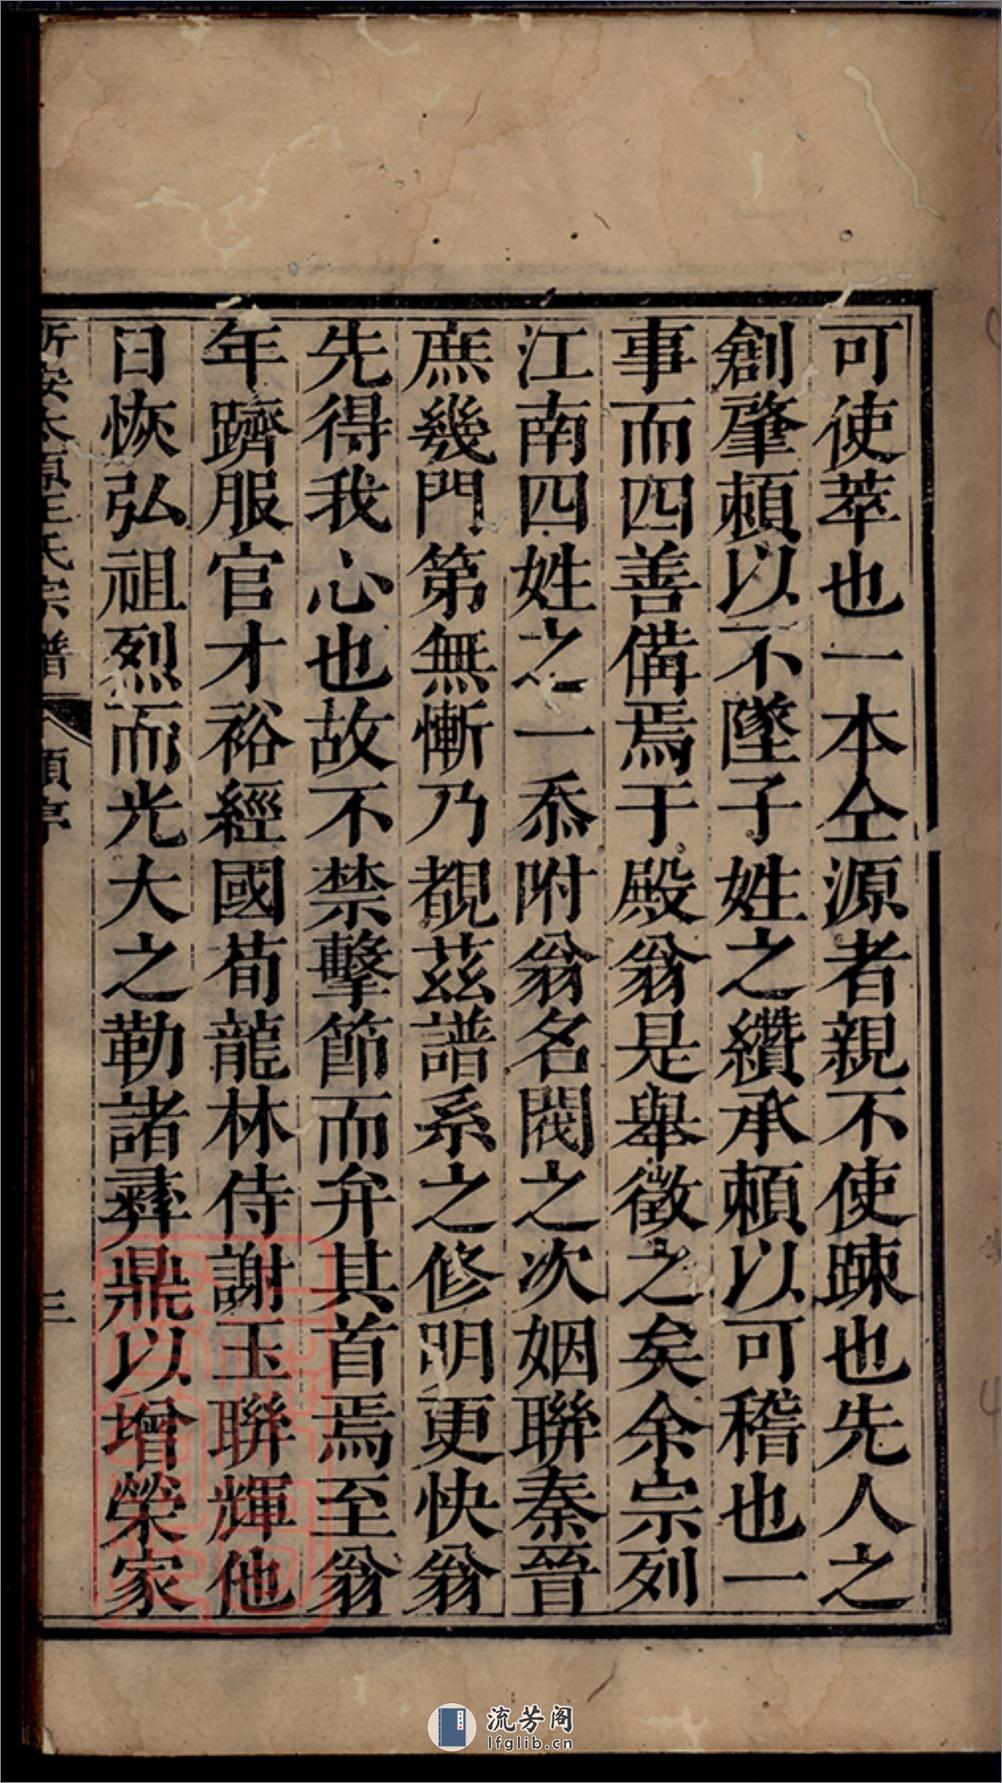 可使萃也一本仝源者親不使踈也先人之
創肇頼以不墜子姓之纘承頼以可稽也一
事而四善備焉于殿翁是舉徵之矣余宗列
江南四姓之一忝附翁名閥之次姻聯秦晉
庶幾門第無慚乃覩茲譜系之修明更快翁
先得我心也故不禁擊節而弁其首焉至翁
年躋服官才裕經國荀龍林侍謝玉聯輝他
日恢弘祖烈而光大之勒諸彛鼎以增榮家
新安太原王氏宗譜 顧序 三
流芳阁
lfglib.cn